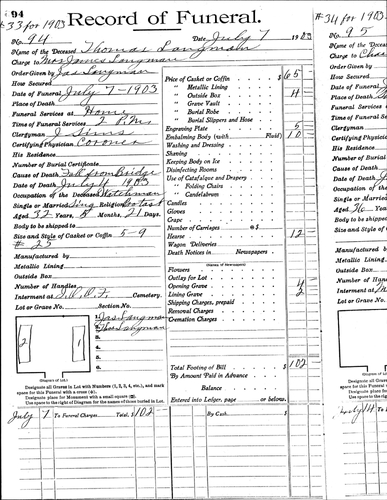 94
#33 for 1903
Record of Funeral.
No. 94
Date July 7 1903
Name of the Deceased Thomas Langman
Charge to Mrs James Langman
Order Given by Jas Langman
How Secured
Date of Funeral July 7-1903
Place of Death
Funeral Services at Home
Time of Funeral Services 2 P.M.
Clergyman J Sims
Certifying Physician Coroner
His Residence
Number of Burial Certificate
Cause of Death Fall from Bridge
Date of Death July 4 1903
Occupation of the Deceased Watchman
Single or Married Sing Religion
Aged 32 Years, 8 Months, 21 Days.
Body to be shipped to
Size and Style of Casket or Coffin 5-9
# 25
Manufactured by
Metallic Lining
Outside Box
Number of Handles
Interment at I.O.O.F. Cemetery.
Lot or Grave No. Section No.
Price of Casket or Coffin $ 65
" Metallic Lining
" Outside Box 4
" Grave Vault
" Burial Robe
" Burial Slippers and Hose
Engraving Plate 5
Embalming Body (with Fluid) 10
Washing and Dressing
Shaving
Keeping Body on Ice
Disinfecting Rooms
Use of Catafalque and Drapery
" Folding Chairs
" Candelabrum
Candles
Gloves
Crape
Number of Carriages @ $
Hearse 12
Wagon Deliveries
Death Notices in Newspapers
(Names of Newspapers)
Flowers
Outlay for Lot
Opening Grave 4
Lining Grave 2
Shipping Charges, prepaid
Removal Charges
Cremation Charges
Total Footing of Bill $ 102
By Amount Paid in Advance
Balance
Entered into Ledger, page or below.
1. Jas Langman
2. Thos Langman
3.
4.
5.
6.
2
1
(Diagram of Lot.)
Designate all Graves in Lot with Numbers (1, 2, 3, 4, etc.), and mark
space for this Funeral with a cross
Designate place for Monument with a small square
Use space to the right of Diagram for the names of those buried in Lot.
July 7 To Funeral Charges, Total, $ 102
By Cash $
#34 for 1903
No. 95
Name of the Deceased
Charge to
Order Given by
How Secured
Date of Funeral
Place of Death
Funeral Services
Time of Funeral
Clergyman
Certifying Physician
His Residence
Number of Burial
Cause of Death
Date of Death
Occupation of the
Single or Married
Aged 76 Years
Body to be shipped
Size and Style of
Manufactured by
Metallic Lining
Outside Box
Number of Handles
Interment at
Lot or Grave No.
July 14